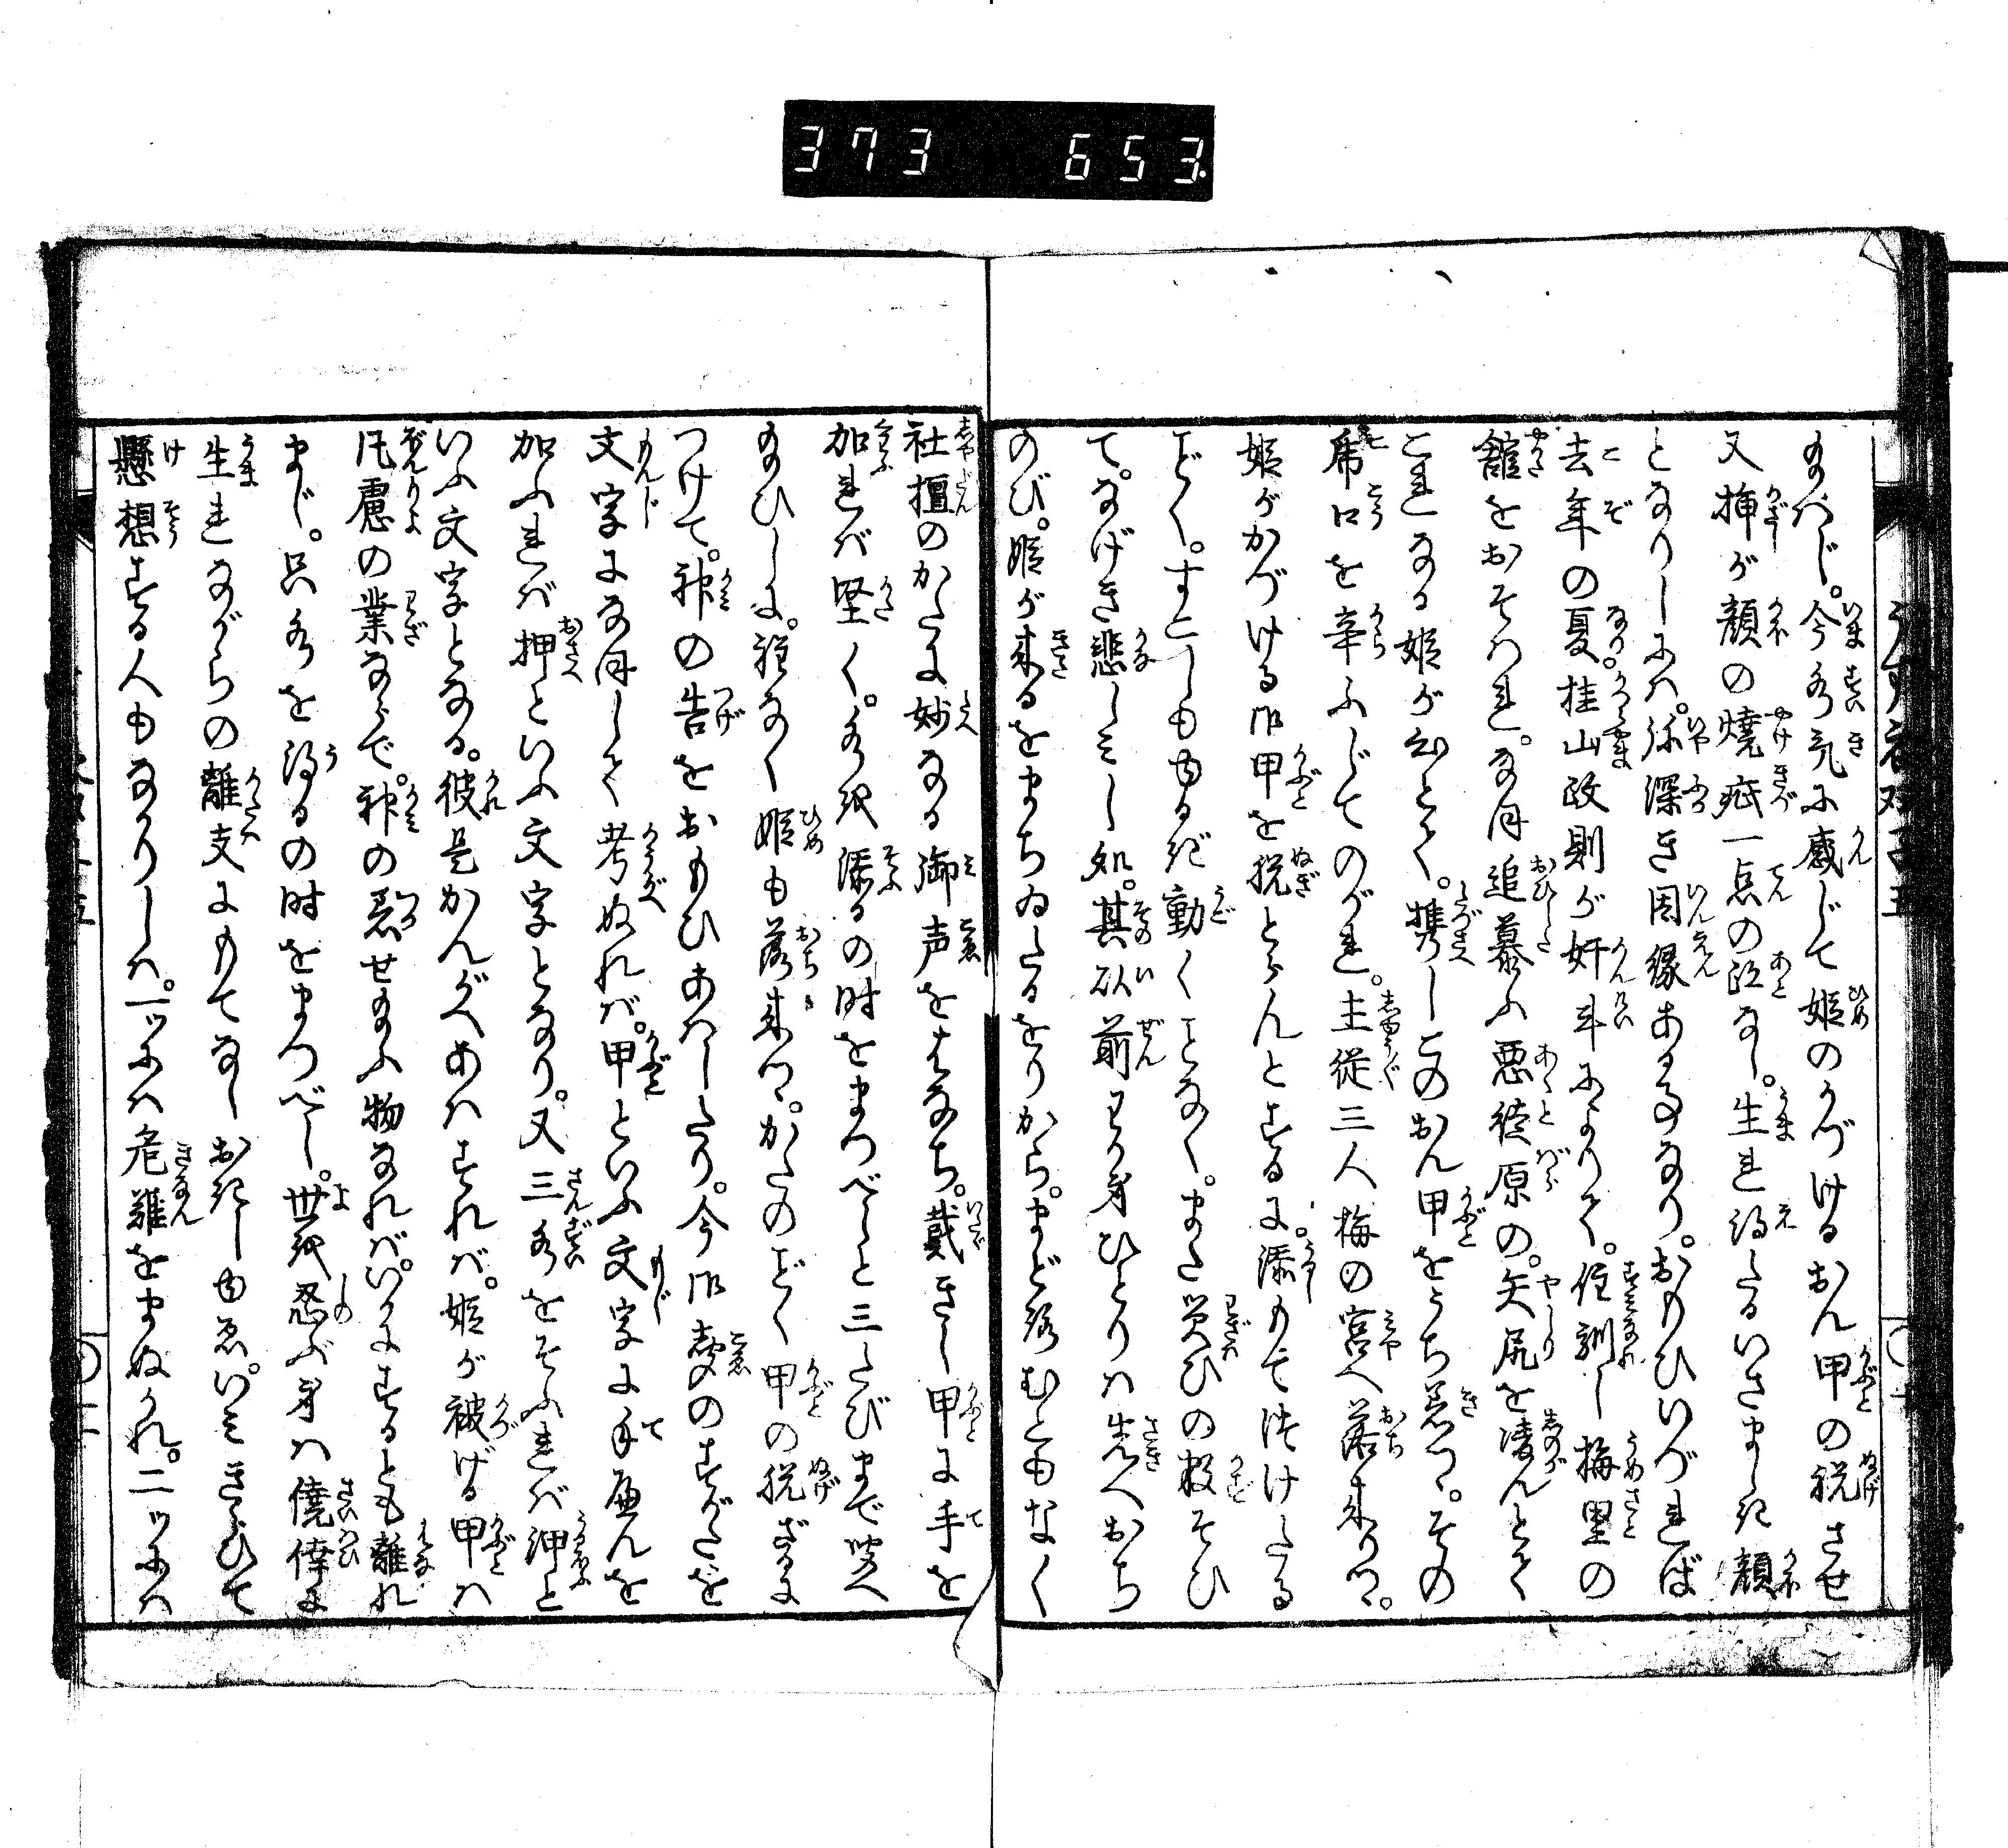 373 653
給はじ。今水気に感じて姫のかづけるおん甲の脱させ
又挿が顔の焼疵一点の迹なし。生れ得たるいさましき顔
となりしには。弥深き因縁ある事なり。おもひいづれば
去年の夏。桂山政則が奸斗によりて。住馴し梅里の
館をおそはれ。なほ追慕ふ悪徒原の。矢尻を凌んとて
これなる姫が父とて。携しこのおん甲をうち着つ。その
虎口を辛ふじてのがれ。主従三人梅の宮へ落来りつ。
姫がかづける此甲を脱とらんとするに。漆もて漬けたる
ごとく。すこしもゆるぎ動くことなく。また災ひの数そひ
て。なげき悲しみし処。其以前わが身ひとりは先へおち
のび。姫が来るをまちゐたるをりから。まどろむともなく
社壇のかたに妙なる御声をはなち。戴きし甲に手を
加れば堅く。水を添るの時をまつべしと三たびまで唱へ
給ひしに。程なく姫も落来つ。かたのごとく甲の脱ざるに
つけて。神の告をおもひあはしたり。今此声のすがたを
文字になほして考ぬれば。甲といふ文字に手へんを
加ふれば押といふ文字となり。又三水をそふれば泙と
いふ文字となる。彼是かんがへあはすれば。姫が被げる甲は
凡慮の業ならで。神の着せ給ふ物なれば。いかにするとも離れ
まじ。只水を得るの時をまつべし。世を忍ぶ身は僥倖に
生れながらの離支にもてなしおきしゆゑ。いみきらひて
懸想する人もなかりしは。一ツには危難をまぬかれ。二ツには